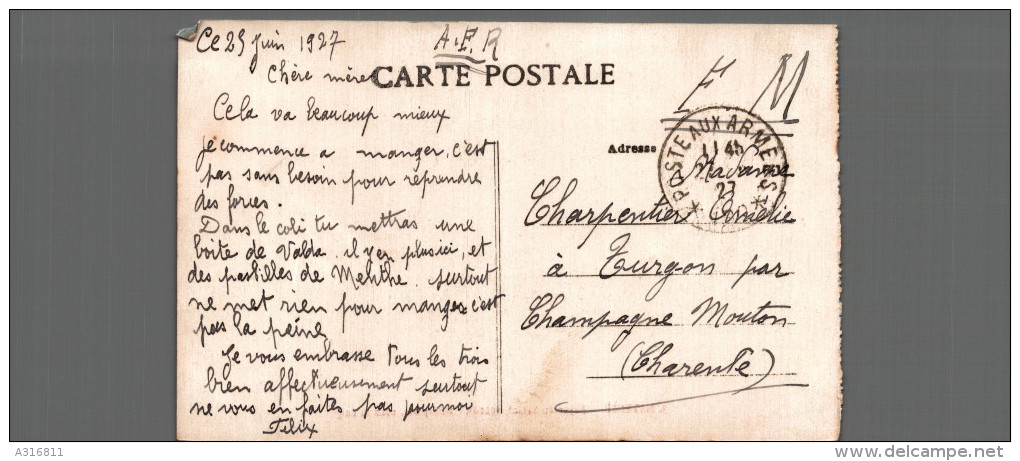 Ce 25 juin 1927
A.F.R
F M
Chère mère
CARTE POSTALE
Cela va beaucoup mieux
je commence a manger, c'est
pas sans besoin pour reprendre
des forces.
Dans le coli tu mettras une
boite de Valda il y en plus ici, et
des pastilles de Menthe. surtout
ne met rien pour manger c'est
pas la peine
Je vous embrasse Tous les trois
bien affectueusement surtout
ne vous en faites pas pour moi
Félix
Adresse
POSTE AUX ARMEES
27
Madame
Charpentier Amélie
à Turgon par
Champagne Mouton
(Charente)
A316811
www.delcampe.net